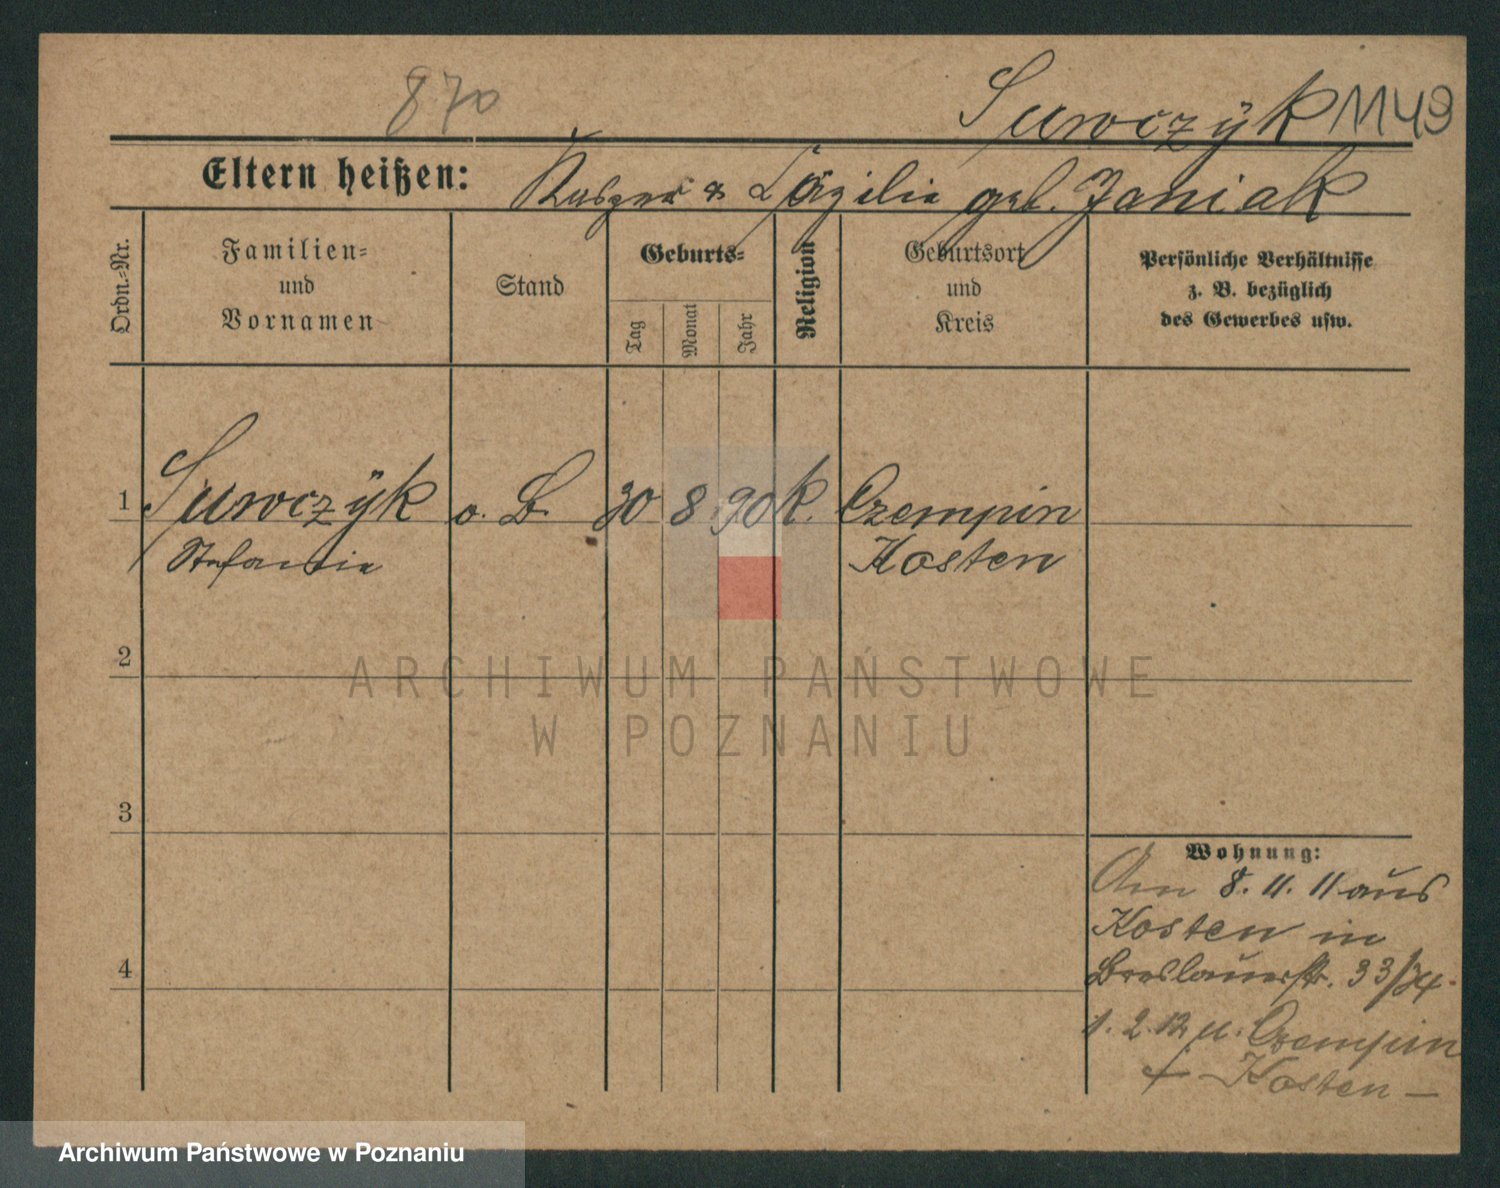 870
Suwczÿk 1149
Eltern heißen: Kasper & Cäzilie geb. Janiak
Ordn.=Nr.
Familien=
und
Vornamen
Stand
Geburts=
Tag
Monat
Jahr
Religion
Geburtsort
und
Kreis
Persönliche Verhältnisse
z. B. bezüglich
des Gewerbes usw.
1 Suwczÿk o. B. 30 8 90 k. Czempin
Stefanie Kosten
2
3
4
Wohnung:
Am 8. 11. 11 aus
Kosten in
Breslauerstr. 33/34.
1. 2. 12 n. Czempin
Kosten —
ARCHIWUM PAŃSTWOWE
W POZNANIU
Archiwum Państwowe w Poznaniu